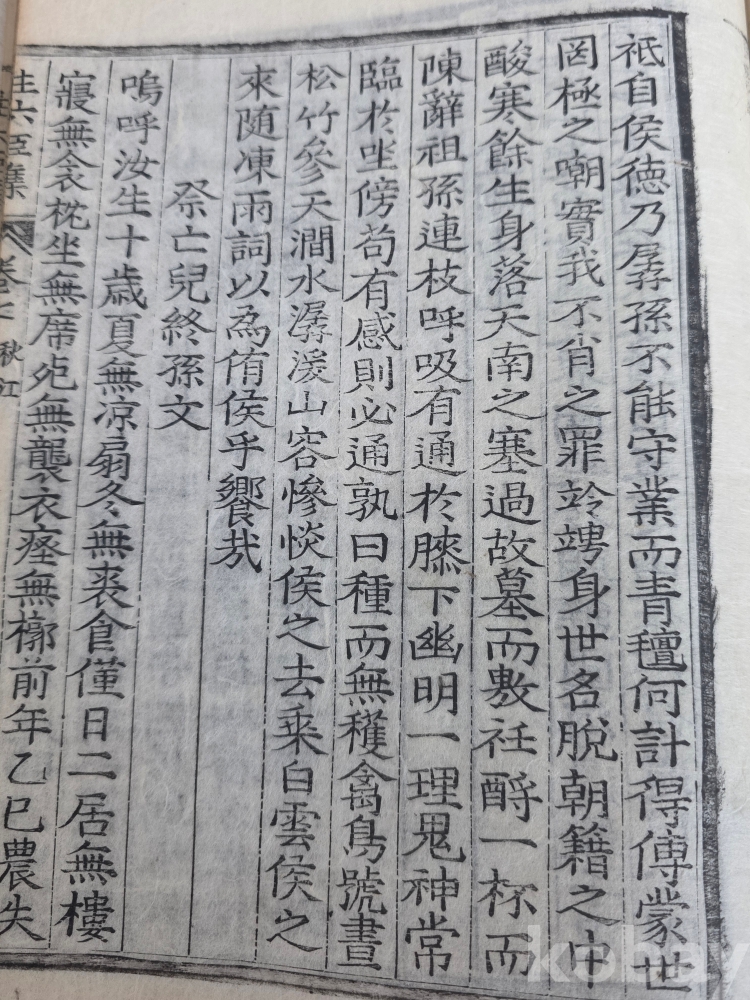 祇自侯德乃孱孫不能守業而青氊何計得傅蒙世
罔極之嘲實我不肖之罪竛竮身世名脫朝籍之中
酸寒餘生身落天南之塞過故墓而敷衽酹一杯而
陳辭祖孫連枝呼吸有通於膝下幽明一理鬼神常
臨於坐傍苟有感則必通孰曰種而無穫禽鳥號晝
松竹參天澗水潺湲山容慘惔侯之去乘白雲侯之
來随凍雨詞以為侑侯乎饗㢤
祭亡兒終孫文
嗚呼汝生十歲夏無凉扇冬無裘食僅日二居無樓
寢無衾枕坐無席死無襲衣瘞無槨前年乙巳農失
生六臣集 卷之 秋江
kobay